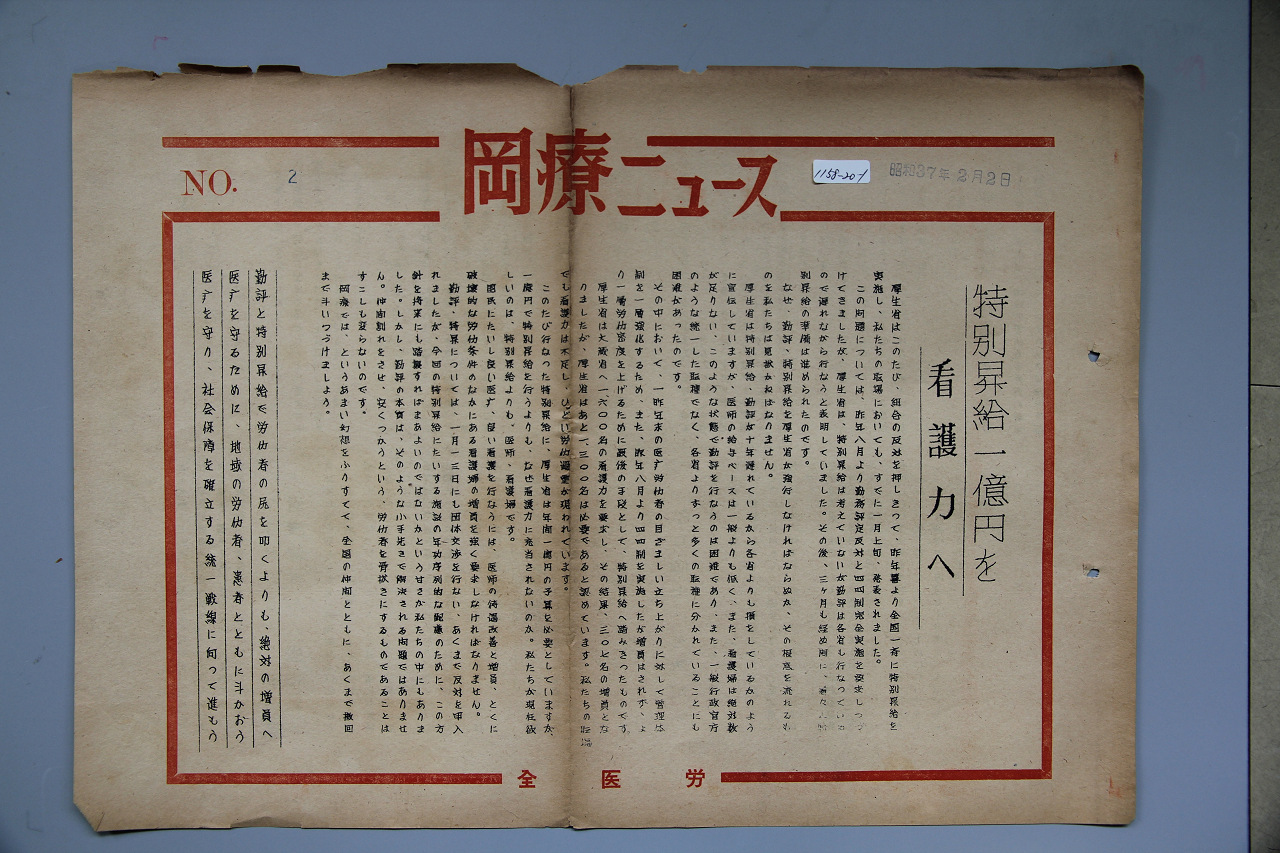 岡療ニュース
NO. 2
1158-20-1
昭和37年2月2日
特別昇給一億円を
看護力へ
厚生省はこのたび、組合の反対を押しきって、昨年暮より全国一斉に特別昇給を
実施し、私たちの職場においても、すでに一月上旬、発表されました。
この問題については、昨年八月より勤務評定反対と四四制完全実施を要求しつづ
けてきましたが、厚生省は、特別昇給は考えていないが勤評は各省も行なっている
ので遅れながら行なうと表明していました。その後、三ヶ月も経め間に、着々と特
別昇給の準備は進められたのです。
なぜ、勤評、特別昇給を厚生省が強行しなければならぬか、その根底を流れるも
のを私たちは見抜かねばなりません。
厚生省は特別昇給、勤評が十年遅れているから各省よりも損をしているかのよう
に宣伝していますが、医師の給与ベースは一般よりも低く、また、看護婦は絶対数
が足りない、このような状態で勤評を行なうのは困難であり、また、一般行政官庁
のような統一した職種でなく、各省よりずっと多くの職種に分かれていることにも
困難があったのです。
その中において、一昨年末の医疗労仂者の目ざましい立ち上がりに対して管理体
制を一層強化するため、また、昨年八月より四四制を実施したが増員はされず、よ
り一層労仂密度を上げるために最後の手段として、特別昇給へ踏みきったものです。
厚生省は大蔵省へ一六〇〇名の看護力を要求し、その結果、三〇七名の増員とな
りましたが、厚生省はあと一、三〇〇名は必要であると認めています。私たちの職場
でも看護力は不足し、ひどい労仂過重が現われています。
このたび行なった特別昇給に、厚生省は年間一億円の予算を必要としていますが、
一億円で特別昇給を行うよりも、なぜ看護力に充当されないのか。私たちが現在欲
しいのは、特別昇給よりも、医師、看護婦です。
国民にたいし良い医疗、良い看護を行なうには、医師の待遇改善と増員、とくに
破壊的な労仂条件のなかにある看護婦の増員を強く要求しなければなりません。
勤評、特昇については、一月一三日にも団体交渉を行ない、あくまで反対を申入
れましたが、今回の特別昇給にたいする施設の年功序列的な配慮のために、この方
針を将来にも踏襲すればまあよいのではないかという甘さが私たちの中にもありま
した。しかし、勤評の本質は、そのような小手先きで解決される問題ではありませ
ん。仲間割れをさせ、安くつかうという、労仂者を骨抜きにするものであることは
すこしも変らないのです。
岡療では、というあまい幻想をふりすてて、全国の仲間とともに、あくまで撤回
まで斗いつづけましょう。
勤評と特別昇給で労仂者の尻を叩くよりも、絶対の増員へ
医疗を守るために、地域の労仂者、患者とともに斗かおう
医疗を守り、社会保障を確立する統一戦線に向って進もう
全医労